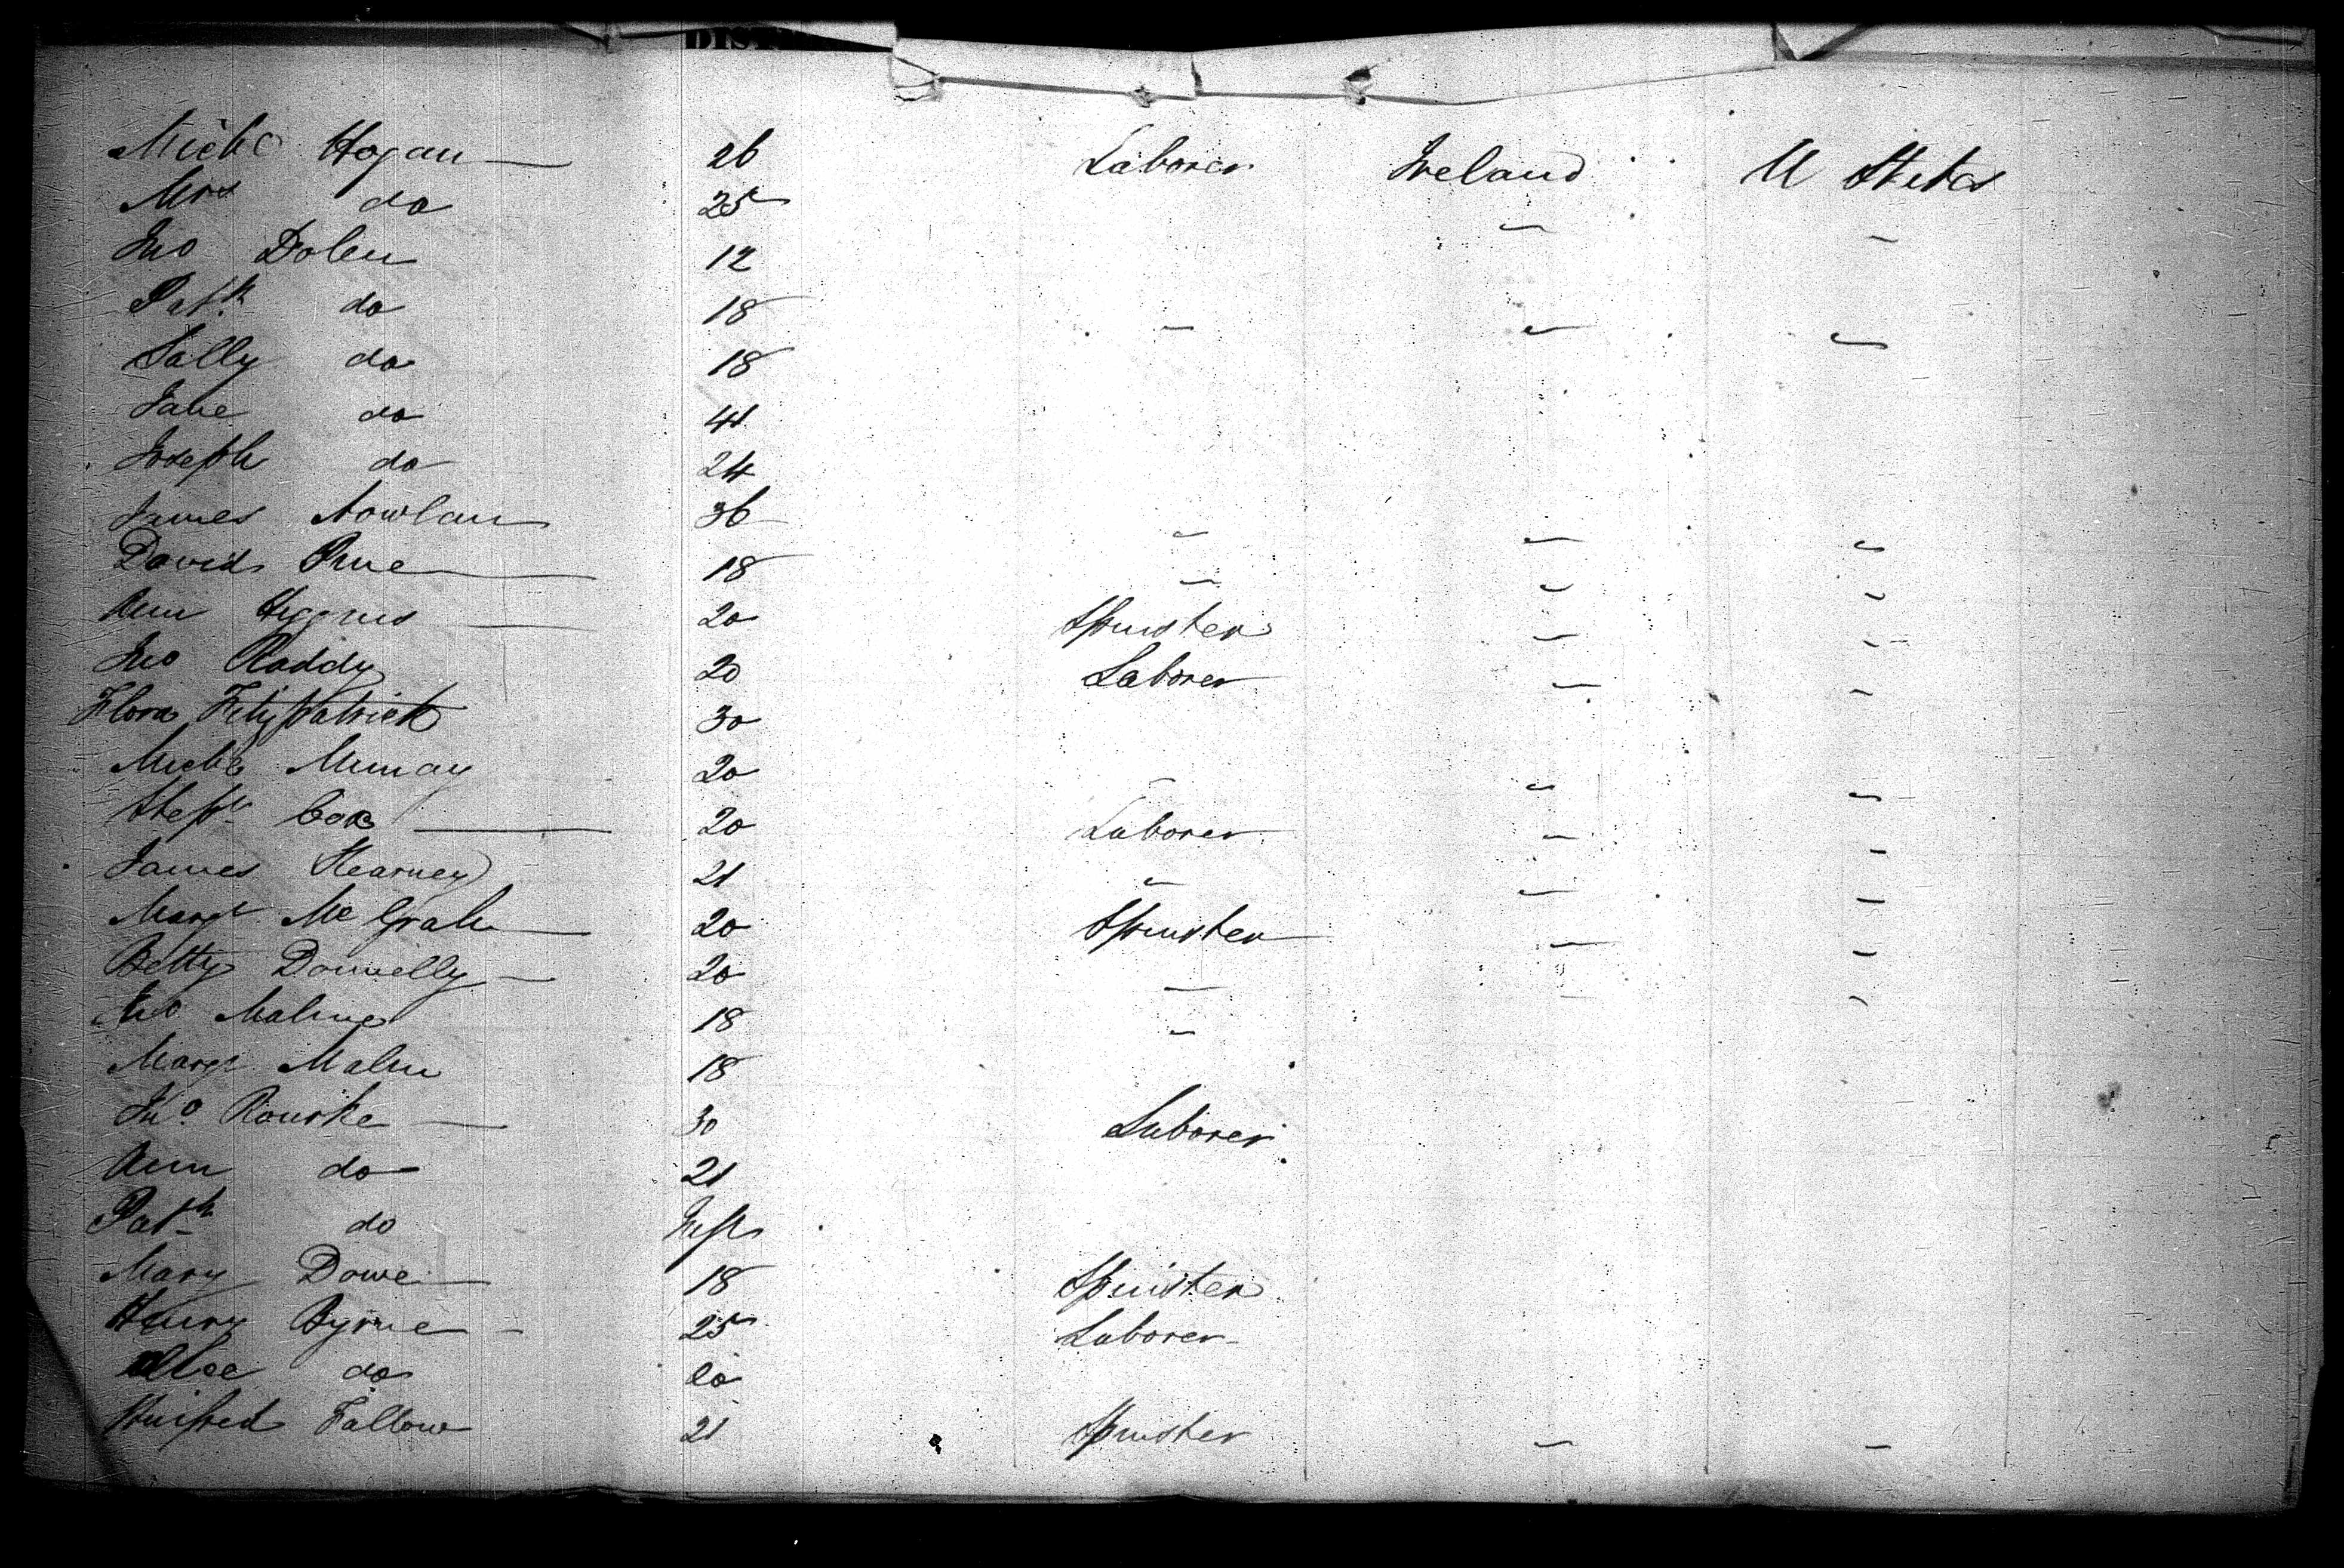 DIST
Michl Hogan — 26 Laborer Ireland U States
Mrs do 25 " "
Jno Dolen 12
Patk do 18 " " "
Sally do 18
Jane do 41
Joseph do 24
James Nowlan 36 " " "
David Rue — 18 " " "
Ann Higgins — 20 Spinster " "
Jno Roddy 20 Laborer " "
Flora Fitzpatrick 30
Michl Murray 20 " " "
Steph Cox — 20 Laborer " "
James Kearney 21 " " "
Margt McGrath — 20 Spinster " "
Betty Donnelly — 20 " "
Jno 18 "
Margt 18
Jno. Rourke — 30 Laborer
Ann do 21
Patk do Inft
Mary Dowe — 18 Spinster
Henry Byrne — 25 Laborer
Alice do
Fallow 21 Spinster " "